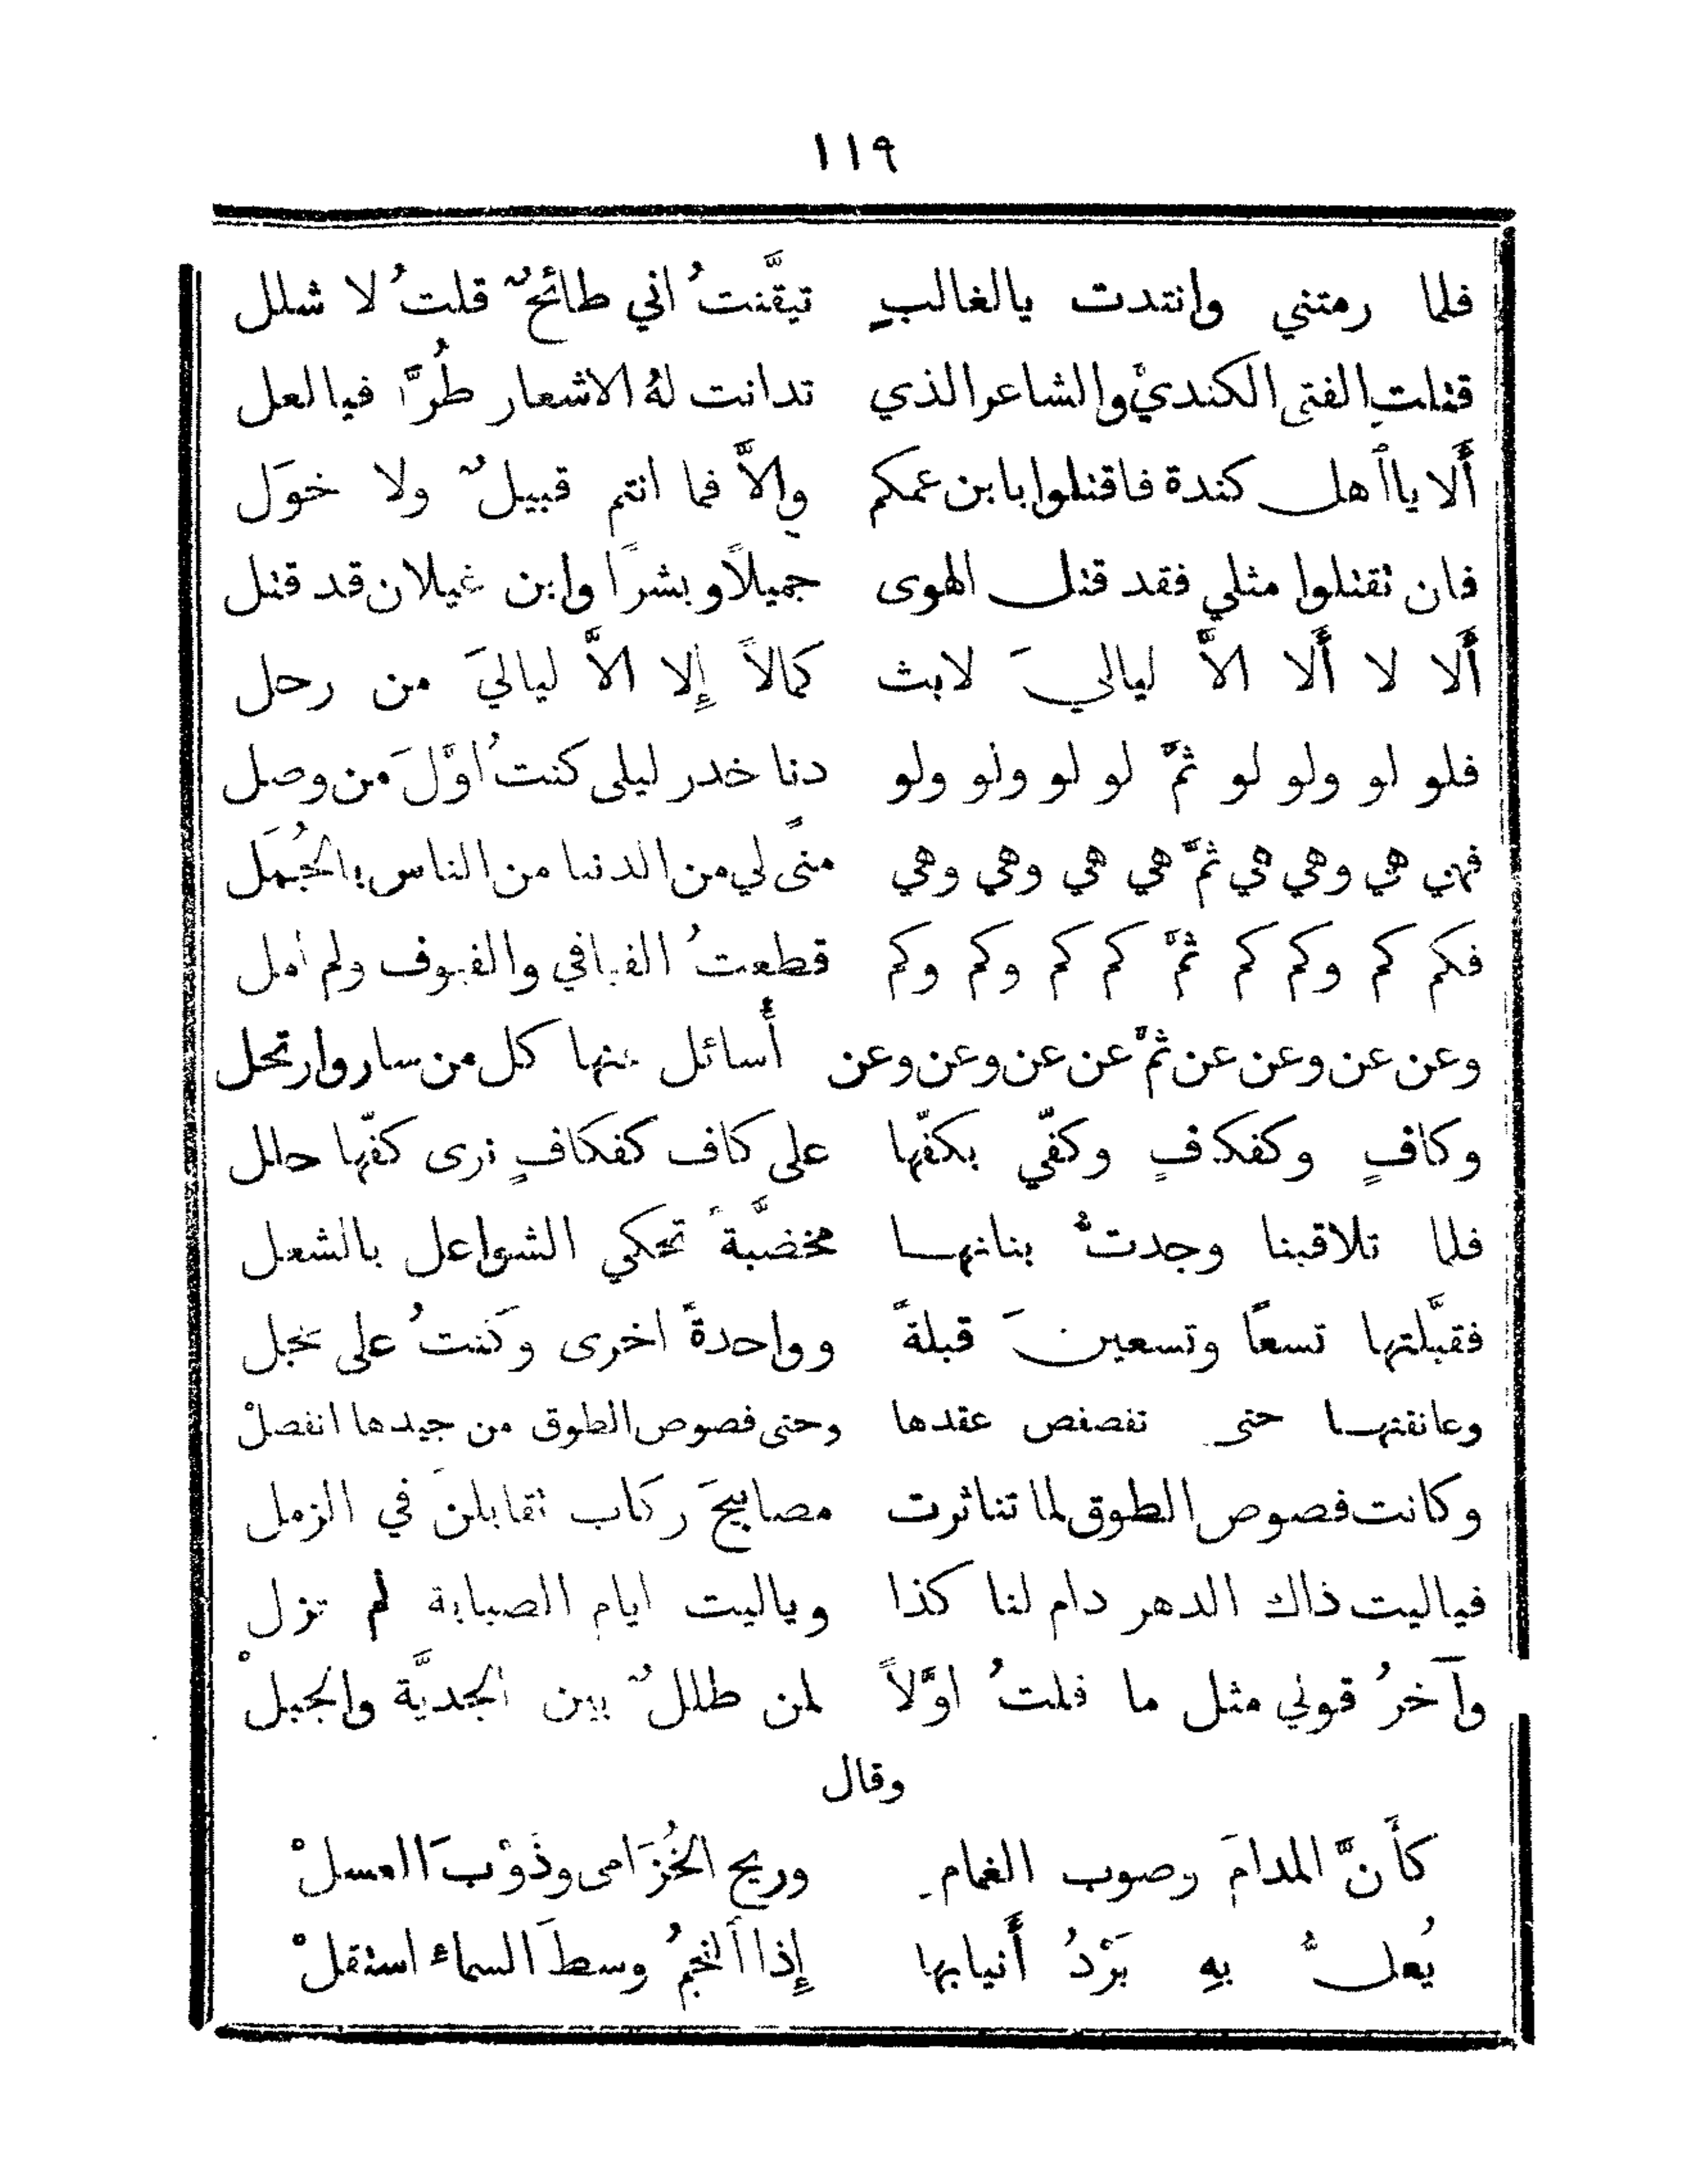 ١١٩
فلما رمتني وانتدت يالغالبٍ تيقَّنتُ اني طائحٌ قلتُ لا شلل
قتلتِ الفتى الكنديْ والشاعر الذي تدانت لهُ الاشعار طُرًّا فيا لعل
أَلا يا أهل كندة فاقتلوا بابن عمكم وإلاَّ فما انتم قبيلٌ ولا خوَل
فان تقتلوا مثلي فقد قتل الهوى جميلاً وبشرًا وابن غيلان قد قتل
أَلا لا أَلا الاَّ لياليَ لابث كمالاً إلا الاَّ لياليَ من رحل
فلو لو ولو لو ثمَّ لو لو ولو ولو دنا خدر ليلى كنتُ اوَّلَ من وصل
فهي هي وهي هي ثمَّ هي هي وهي وهي منًى لي من الدنيا من الناس بالجُمَل
فكم كم وكم كم ثمَّ كم كم وكم وكم قطعتُ الفيافي والفيوف ولم امل
وعن عن وعن عن ثمَّ عن عن وعن وعن أَسائل عنها كل من سار وارتحل
وكافٍ وكفكافٍ وكفّي بكفّها على كاف كفكافٍ ترى كفّها حلل
فلما تلاقينا وجدتُ بنانها مخضَّبةً تحكي الشواعل بالشعل
فقبَّلتها تسعًا وتسعينَ قبلةً وواحدةً اخرى وكنتُ على عجل
وعانقتها حتى تفصفص عقدها وحتى فصوص الطوق من جيدها انفصلْ
وكانت فصوص الطوق لما تناثرت مصابيحَ ركاب تقابلنَ في الزمل
فياليت ذاك الدهر دام لنا كذا وياليت ايام الصبابة لم تزل
وآخرُ قولي مثل ما قلتُ اوَّلاً لمن طللٌ بين الجديَّة والجبلْ
وقال
كأَنَّ المدامَ وصوب الغمام وريح الخُزَامى وذَوْبَ العسلْ
يُعلُّ بهِ بَرْدُ أَنيابها إذا النجمُ وسطَ السماءِ استقلْ